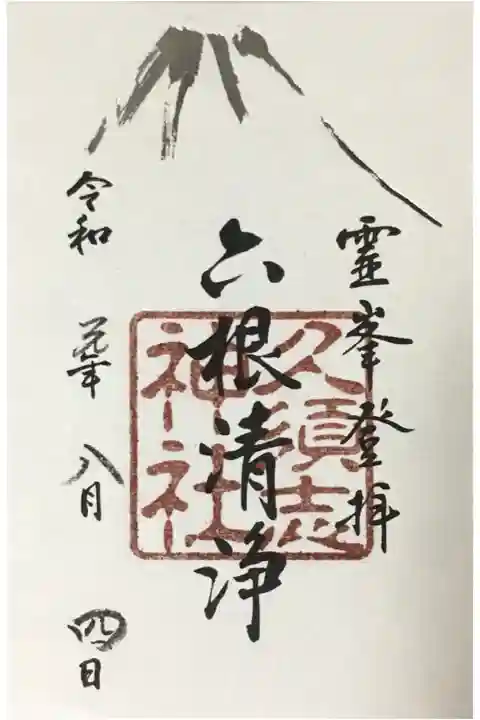 霊峯登拝
六根清浄
久須志
神社
令和 元年 八月 四日